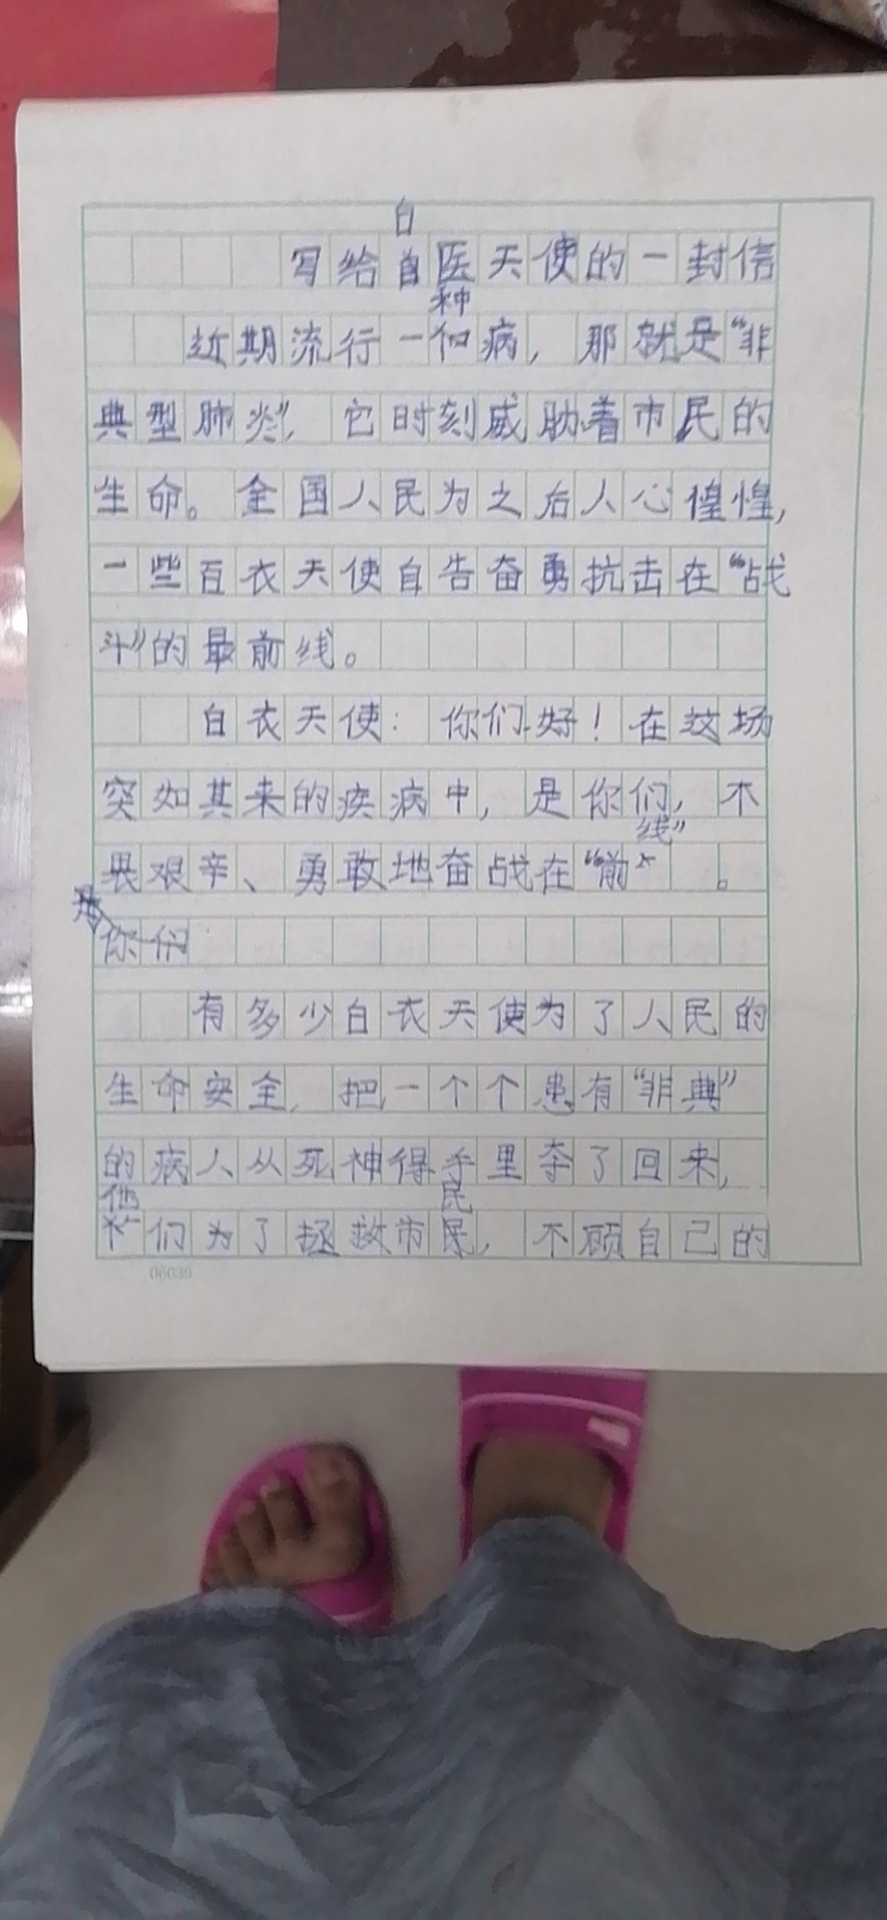 写给白医天使的一封信
近期流行一种病，那就是“非
典型肺炎”，它时刻威胁着市民的
生命。全国人民为之后人心惶惶，
一些百衣天使自告奋勇抗击在“战
斗”的最前线。
白衣天使：你们好！在这场
突如其来的疾病中，是你们，不
畏艰辛、勇敢地奋战在“前线”。
是你们
有多少白衣天使为了人民的
生命安全，把一个个患有“非典”
的病人从死神得手里夺了回来，
他们为了拯救市民，不顾自己的
06039